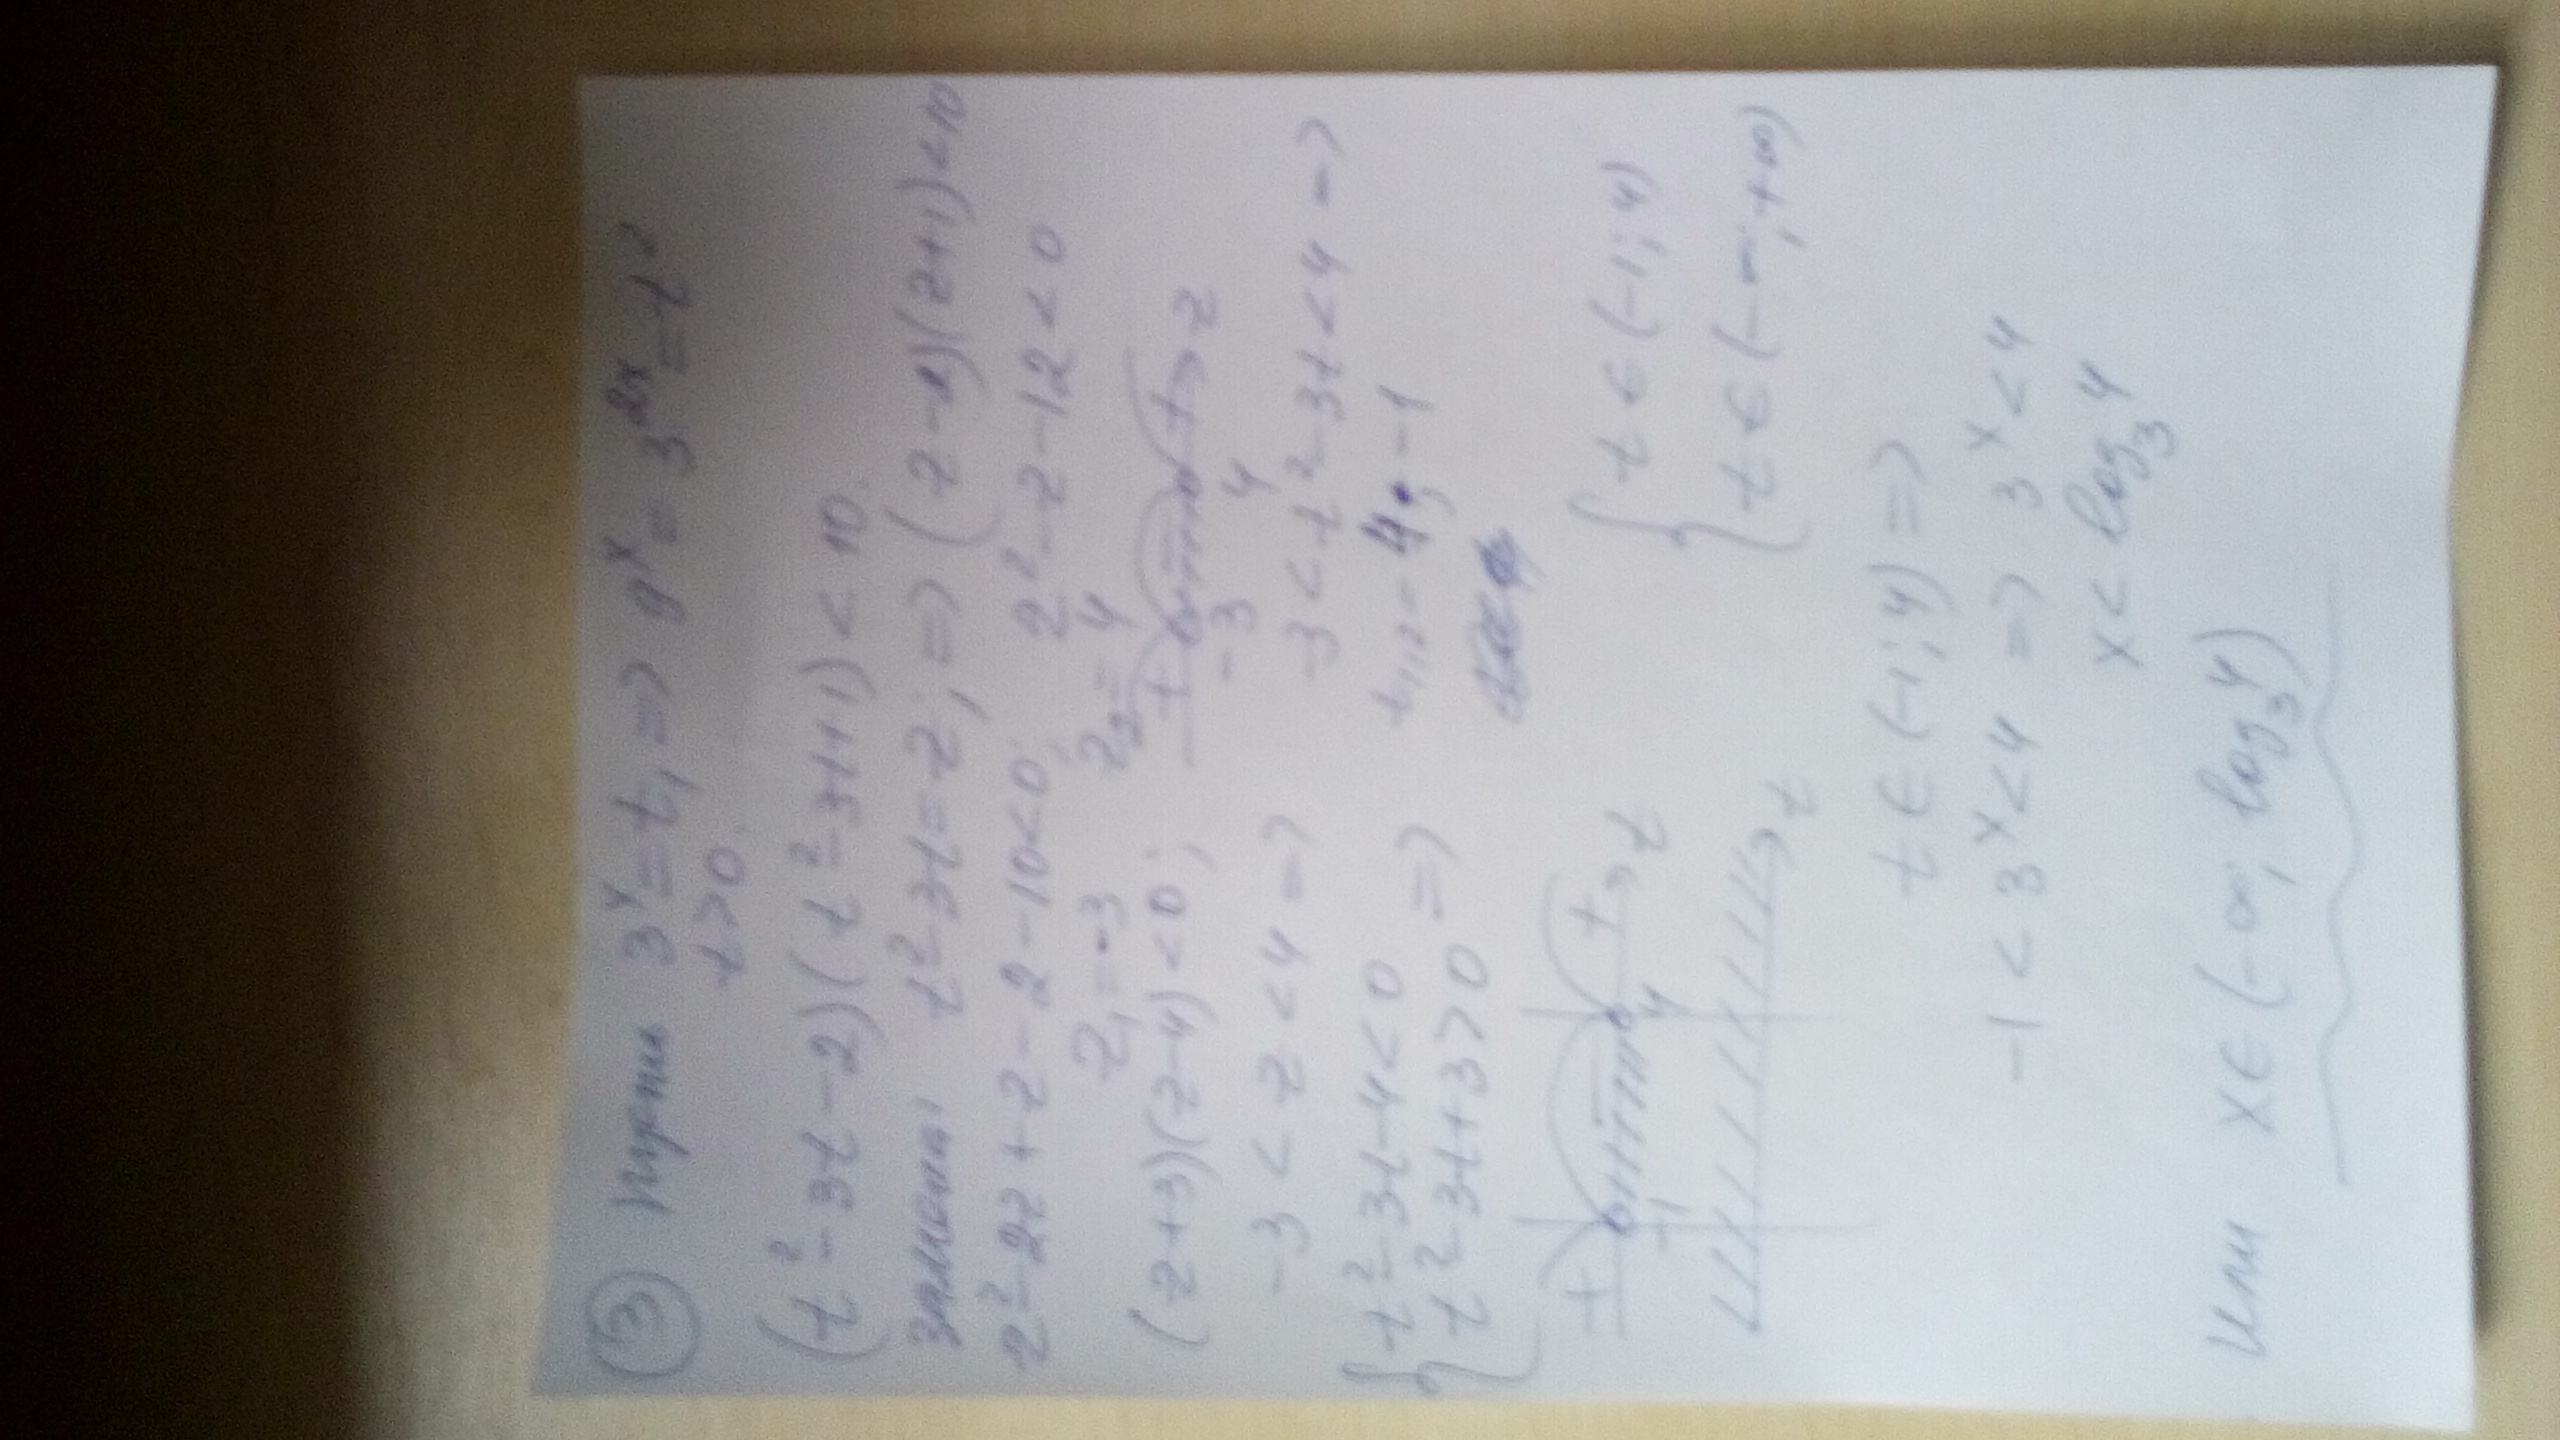 ③ Пусть 3^x = t, => 9^x = 3^2x = t^2
t > 0
(t^2 - 3t - 2)(t^2 - 3t + 1) < 10
замена: t^2 - 3t = z; => (z - 2)(z + 1) < 10
z^2 - 2z + z - 2 - 10 < 0; z^2 - z - 12 < 0
z_1 = -3 z_2 = 4
(z + 3)(z - 4) < 0; + - + z
-3 4
-3 < z < 4 => -3 < t^2 - 3t < 4 =>
{ t^2 - 3t - 4 < 0 t_1,2 = 4; -1
t^2 - 3t + 3 > 0 =>
+ - + t { t ∈ (-1; 4)
-1 4
t t ∈ (-∞; +∞)
t ∈ (-1; 4) =>
-1 < 3^x < 4 => 3^x < 4
x < log_3 4
или x ∈ (-∞; log_3 4)